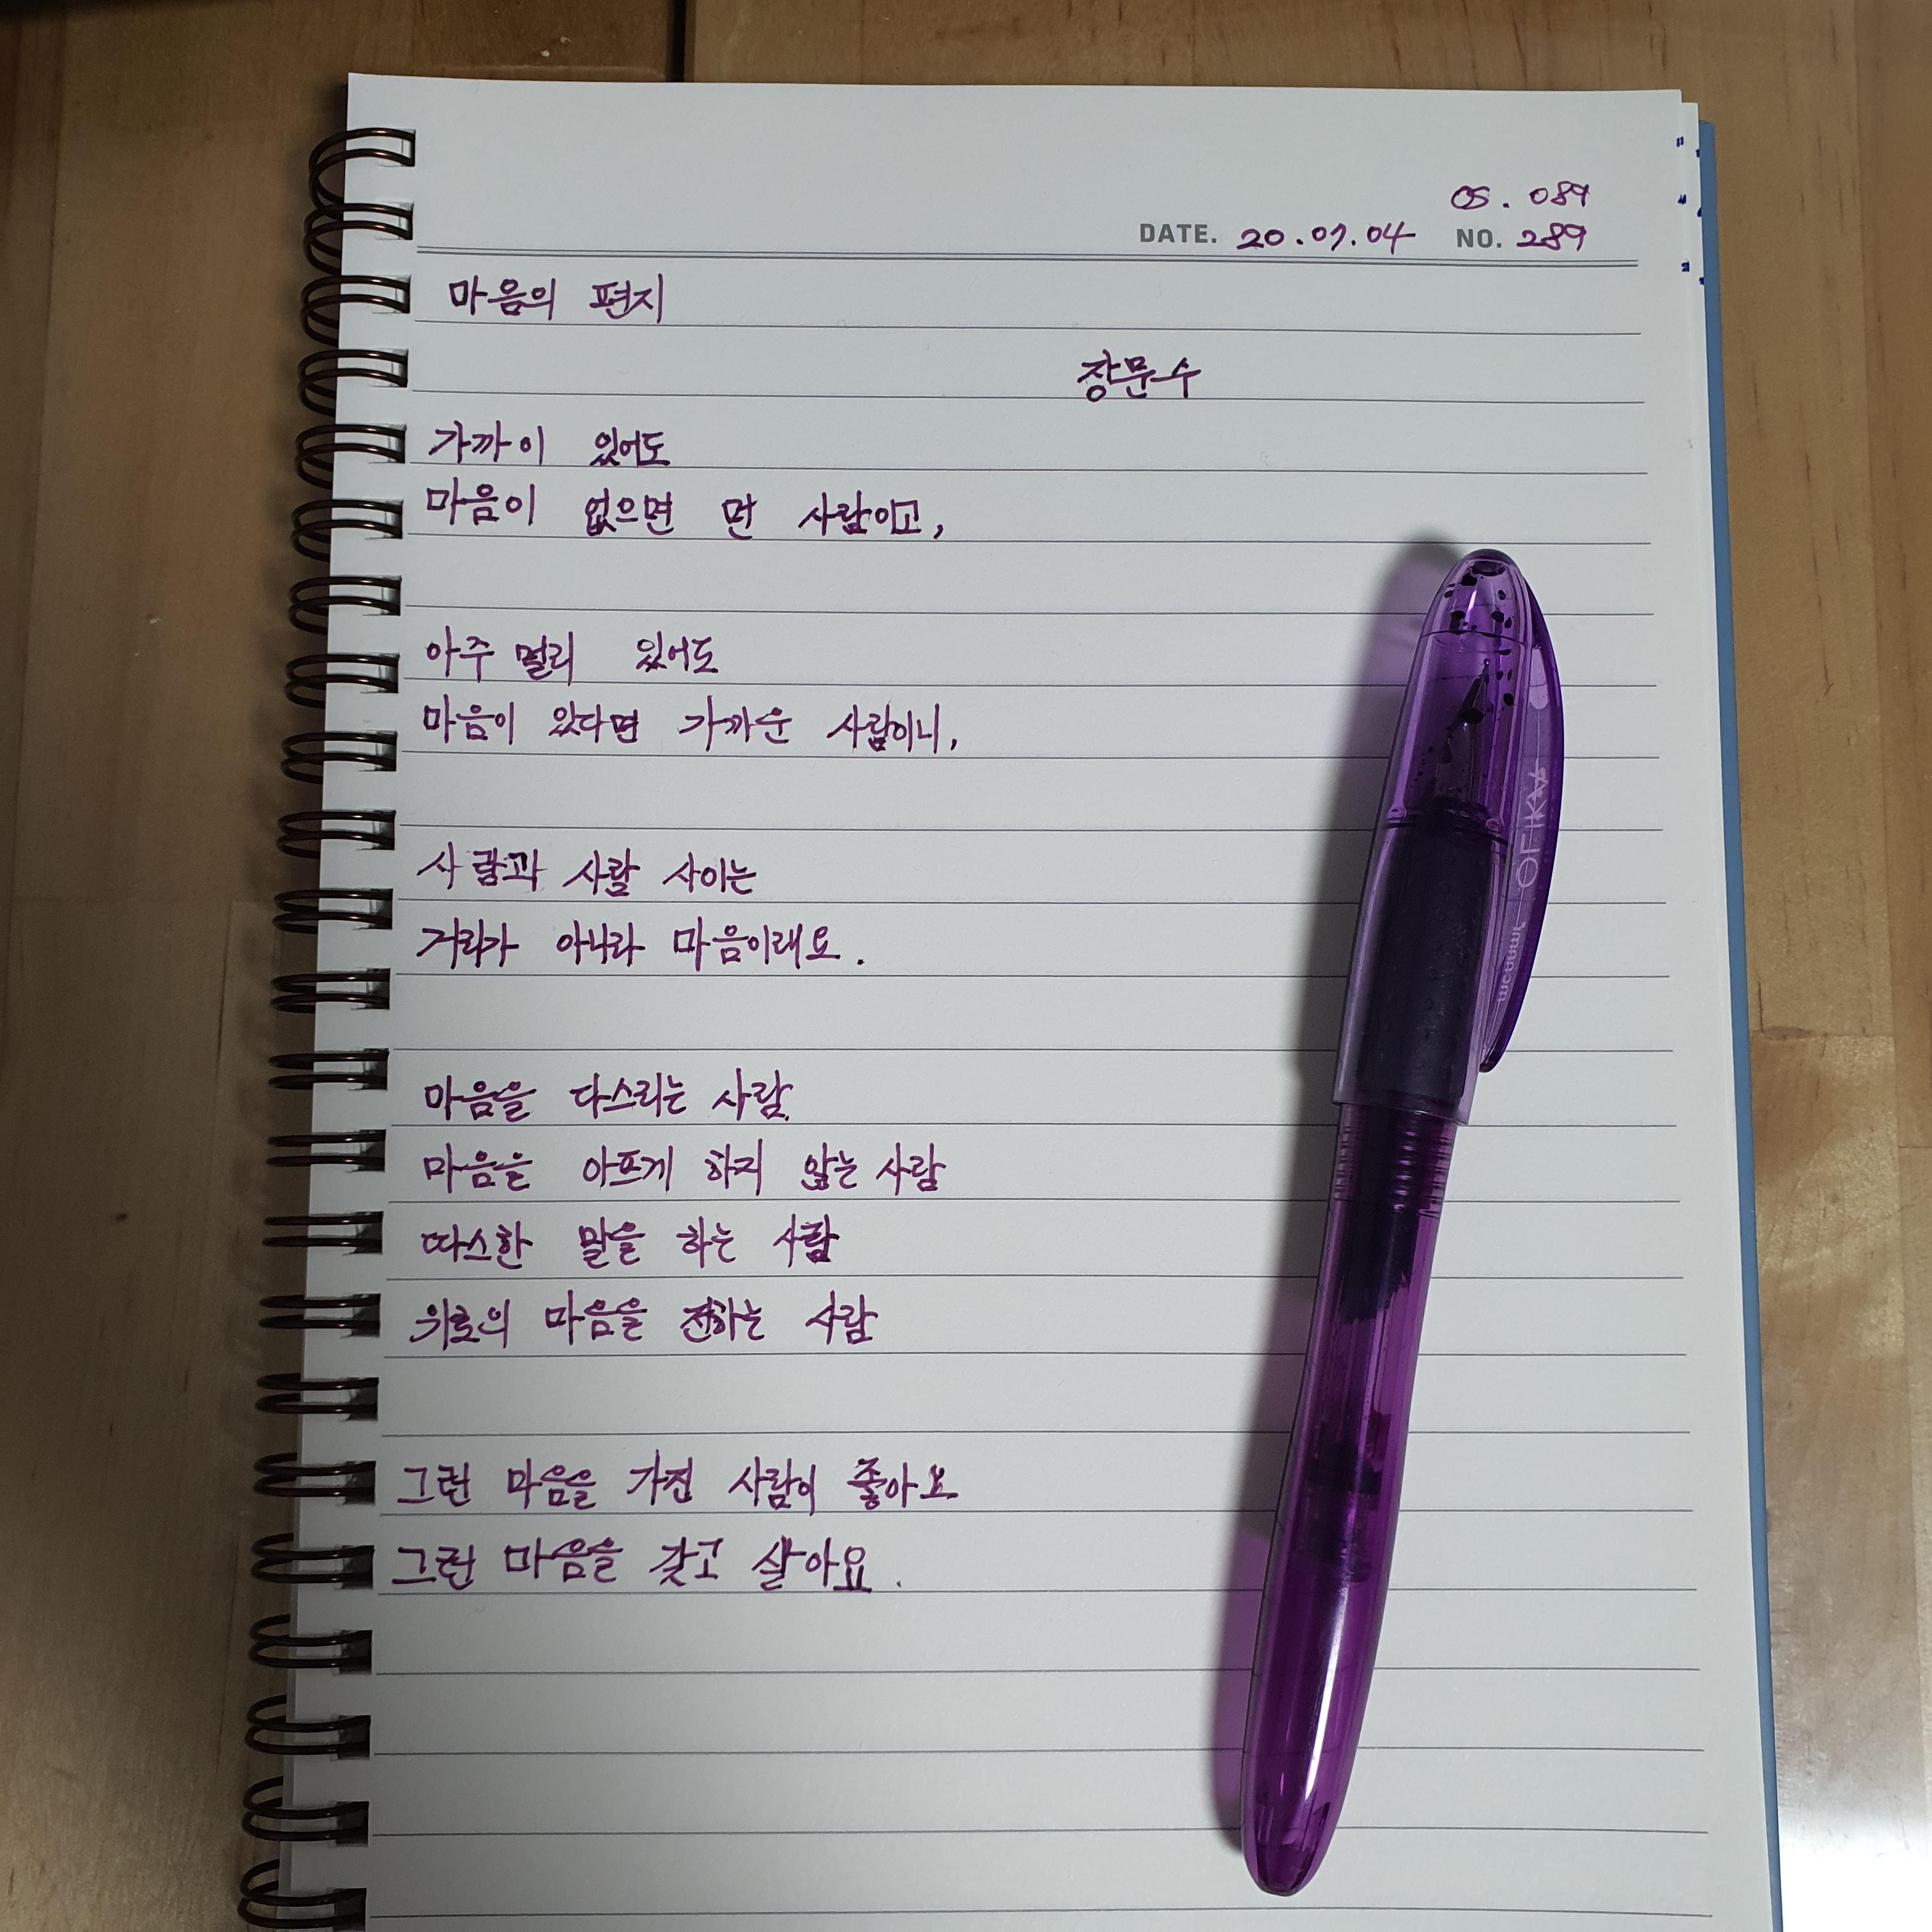 OS. 089
DATE. 20.07.04 NO. 289
마음의 편지
장문수
가까이 있어도
마음이 없으면 먼 사람이고,
아주 멀리 있어도
마음이 있다면 가까운 사람이니,
사람과 사람 사이는
거리가 아니라 마음이래요.
마음을 다스리는 사람
마음을 아프게 하지 않는 사람
따스한 말을 하는 사람
위로의 마음을 전하는 사람
그런 마음을 가진 사람이 좋아요
그런 마음을 갖고 살아요.
monami OLIKA